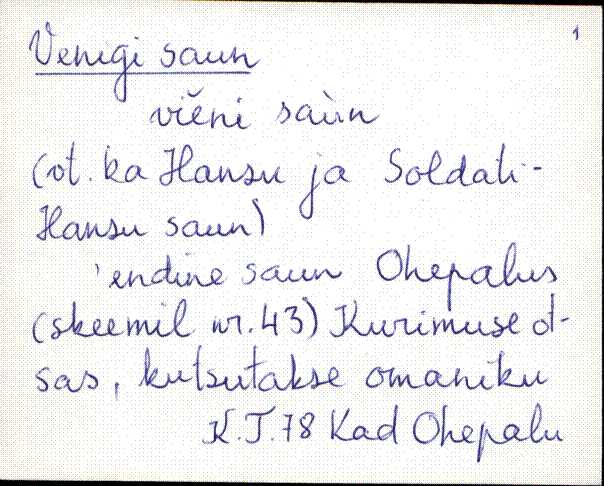 1
Venigi saun
viěni saùn
(vt. ka Hansu ja Soldati-
Hansu saun)
'endine saun Ohepalus
(skeemil nr. 43) Kurimuse ot-
sas, kutsutakse omaniku
K.T. 78 Kad Ohepalu